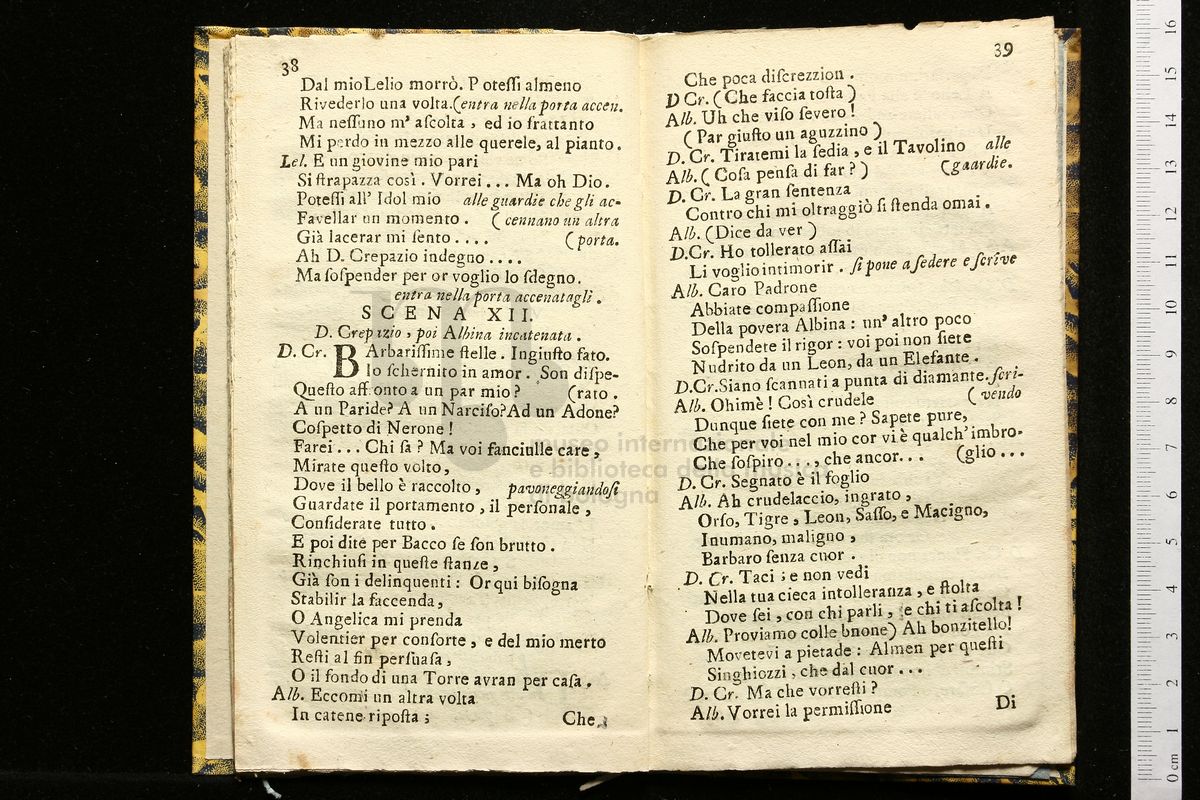 38
Dal mioLelio morrò. Poteſſi almeno
Rivederlo una volta.(entra nella porta accen.
Ma neſſuno m' aſcolta , ed io frattanto
Mi perdo in mezzo alle querele, al pianto.
Lel. E un giovine mio pari
Si ſtrapazza così. Vorrei... Ma oh Dio.
Poteſſi all' Idol mio alle guardie che gli ac-
Favellar un momento. ( cennano un altra
Già lacerar mi ſento .... (porta.
Ah D. Crepazio indegno ....
Ma ſoſpender per or voglio lo ſdegno.
entra nella porta accenatagli.
SCENA XII.
D. Crepazio , poi Albina incatenata.
D. Cr. BArbariſſime ſtelle. Ingiuſto fato.
Io ſchernito in amor. Son diſpe-
Queſto affronto a un par mio? (rato.
A un Paride? A un Narciſo?Ad un Adone?
Coſpetto di Nerone!
Farei... Chi ſa? Ma voi fanciulle care,
Mirate queſto volto,
Dove il bello è raccolto, pavoneggiandoſi
Guardate il portamento, il perſonale,
Conſiderate tutto.
E poi dite per Bacco ſe ſon brutto.
Rinchiuſi in queſte ſtanze,
Già ſon i delinquenti: Or qui biſogna
Stabilir la faccenda,
O Angelica mi prenda
Volentier per conſorte, e del mio merto
Reſti al fin perſuaſa,
O il fondo di una Torre avran per caſa.
Alb. Eccomi un altra volta
In catene ripoſta;
Che
39
Che poca diſcrezzion.
D Cr. (Che faccia toſta)
Alb. Uh che viſo ſevero!
(Par giuſto un aguzzino)
D. Cr. Tiratemi la ſedia, e il Tavolino alle
Alb. (Coſa penſa di far?) (gaardie.
D. Cr. La gran ſentenza
Contro chi mi oltraggiò ſi ſtenda omai.
Alb. (Dice da ver)
D.Cr. Ho tollerato aſſai
Li voglio intimorir. ſi pone a ſedere e ſcrive
Alb. Caro Padrone
Abbiate compaſſione
Della povera Albina: un' altro poco
Soſpendete il rigor: voi poi non ſiete
Nudrito da un Leon, da un Elefante.
D.Cr.Siano ſcannati a punta di diamante.ſcri-
Alb. Ohimè! Così crudele (vendo
Dunque ſiete con me? Sapete pure,
Che per voi nel mio cor vi è qualch' imbro-
Che ſoſpiro..., che ancor... (glio...
D. Cr. Segnato è il foglio
Alb. Ah crudelaccio, ingrato,
Orſo, Tigre, Leon, Saſſo, e Macigno,
Inumano, maligno,
Barbaro ſenza cuor.
D. Cr. Taci; e non vedi
Nella tua cieca intolleranza, e ſtolta
Dove ſei, con chi parli, e chi ti aſcolta!
Alb. Proviamo colle bnone) Ah bonzitello!
Movetevi a pietade: Almen per queſti
Singhiozzi, che dal cuor...
D. Cr. Ma che vorreſti?
Alb. Vorrei la permiſſione
Di
museo internazionale
e biblioteca della musica
di bologna